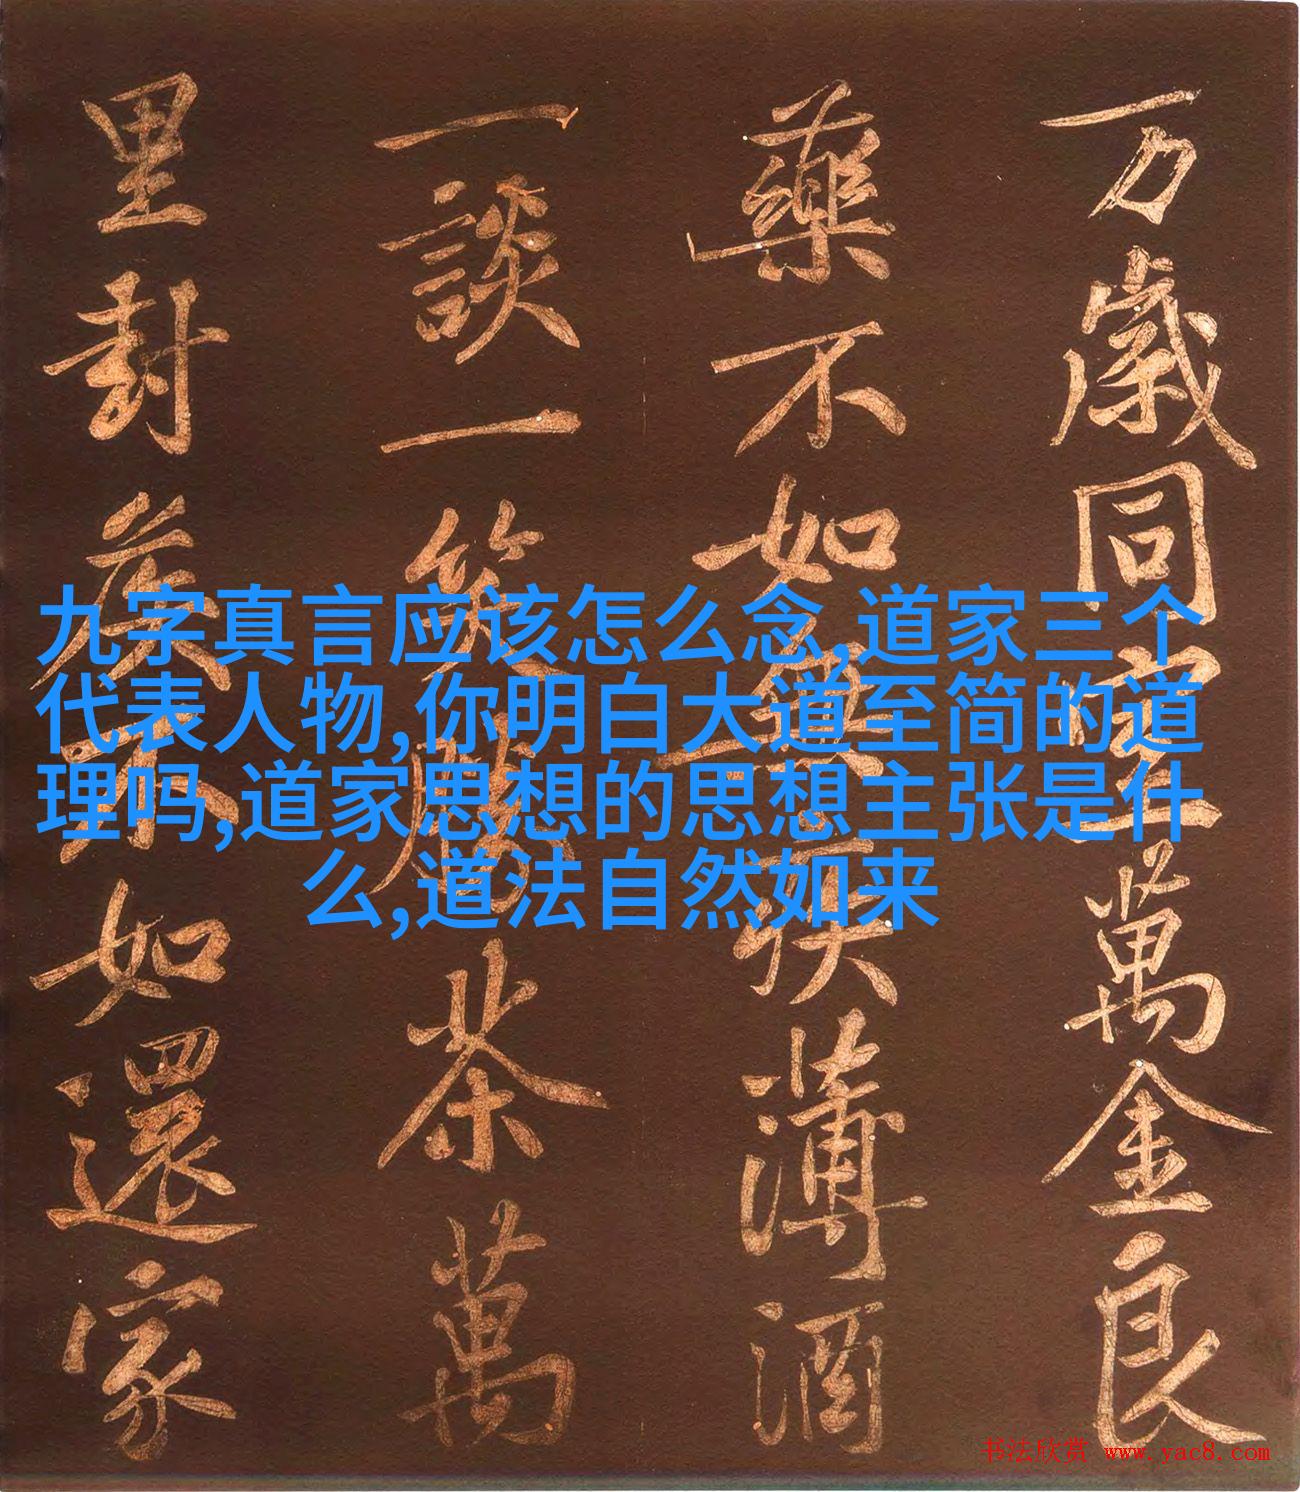 万歲同室萬金良
藥不如無疾薄酒
一談一笑勝茶萬
里封侯不如還家
九字真言应该怎么念,道家三个
代表人物,你明白大道至简的道
理吗,道家思想的思想主张是什
么,道法自然如来
书法欣赏 www.yac8.com